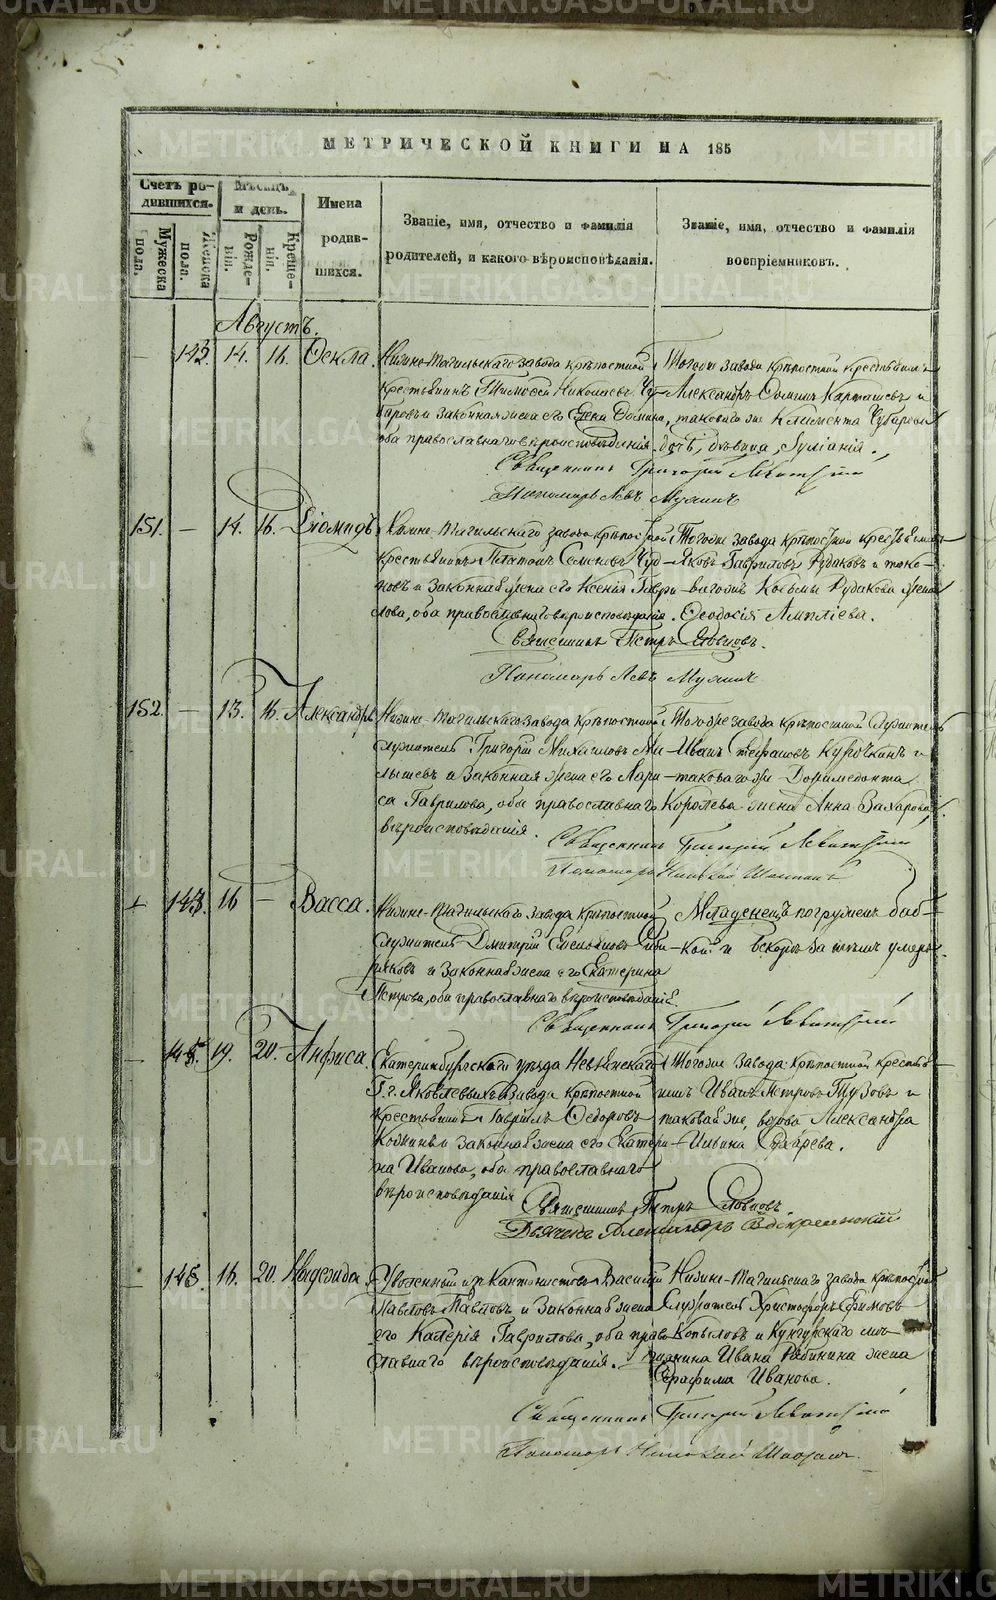 МЕТРИЧЕСКОЙ КНИГИ НА 185
Счетъ родившихся.
Мѣсяцъ и день.
Имена родившихся.
Званіе, имя, отчество и фамилія родителей, и какого вѣроисповѣданія.
Званіе, имя, отчество и фамилія воспріемниковъ.
Мужеска пола.
Женска пола.
Рожденія.
Крещенія.
Августъ.
142 14. 16. Ѳекла.
Нижне-Тагильскаго завода крѣпостной
крестьянинъ Тимоѳей Николаевъ Чу-
и законная жена его Елена Ѳомина,
оба православнаго вѣроисповѣданія.
Тогоже завода крѣпостной крестьянинъ
Александръ Ѳоминъ Карташевъ и
таковагоже Климента Чубарева
дочь, дѣвица, Іуліанія.
Священникъ Григорій Левитскій
Пономарь Левъ Мухинъ
151. — 14. 16. Діомидъ
Нижне-Тагильскаго завода крѣпостной
крестьянинъ Платонъ Семеновъ Чуд-
новъ и законная жена его Ксенія Гаври-
лова, оба православнаго вѣроисповѣданія.
Тогоже завода крѣпостной крестьянинъ
Яковъ Гавриловъ Рудаковъ и тако-
вагоже Козьмы Рудакова жена
Ѳеодосія
Священникъ Петръ Словцовъ.
Пономарь Левъ Мухинъ
152. — 13. 16. Александръ
Нижне-Тагильскаго завода крѣпостной
служитель Григорій Михаиловъ Ма-
лышевъ и законная жена его Лари-
са Гаврилова, оба православнаго
вѣроисповѣданія.
Тогоже завода крѣпостной служитель
Иванъ Стефановъ Курочкинъ и
таковагоже Доримедонта
Королева жена Анна Захарова.
Священникъ Григорій Левитскій
Пономарь Николай
143. 16 — Васса.
Нижне-Тагильскаго завода крѣпостной
служитель Дмитрій
и законная жена его Екатерина
Петрова, оба православнаго вѣроисповѣданія
Младенецъ погруженъ баб-
кой и вскорѣ за тѣмъ умеръ.
Священникъ Григорій Левитскій
19. 20. Анфиса.
Екатеринбургскаго уѣзда Невьянскаго
Гг. Яковлевыхъ завода крѣпостной
крестьянинъ Гавріилъ Ѳедоровъ
и законная жена его Екатери-
на Иванова, оба православнаго
вѣроисповѣданія
Тогоже завода крѣпостной кресть-
янинъ Иванъ Петровъ и
таковаяже, вдова Александра
Ильина
Священникъ Петръ Словцовъ
Дьячекъ Александръ Воскресенскій
145. 16. 20. Надежда.
Уволенный изъ Кантонистовъ Василій
Павловъ Павловъ и законная жена
его Калерія Гаврилова, оба право-
славнаго вѣроисповѣданія.
Нижне-Тагильскаго завода крѣпостной
служитель Христофоръ Ефимовъ
Копыловъ и Кунгурскаго мѣ-
щанина Ивана Рябинина жена
Серафима Иванова.
Священникъ Григорій Левитскій
Пономарь Николай
METRIKI.GASO-URAL.RU